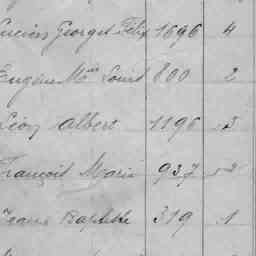 Lucien Georges Félix 1696 4
Eugène Louis 800 2
Léon Albert 1196 3
François Marie 937 2
Jean Baptiste 319 1